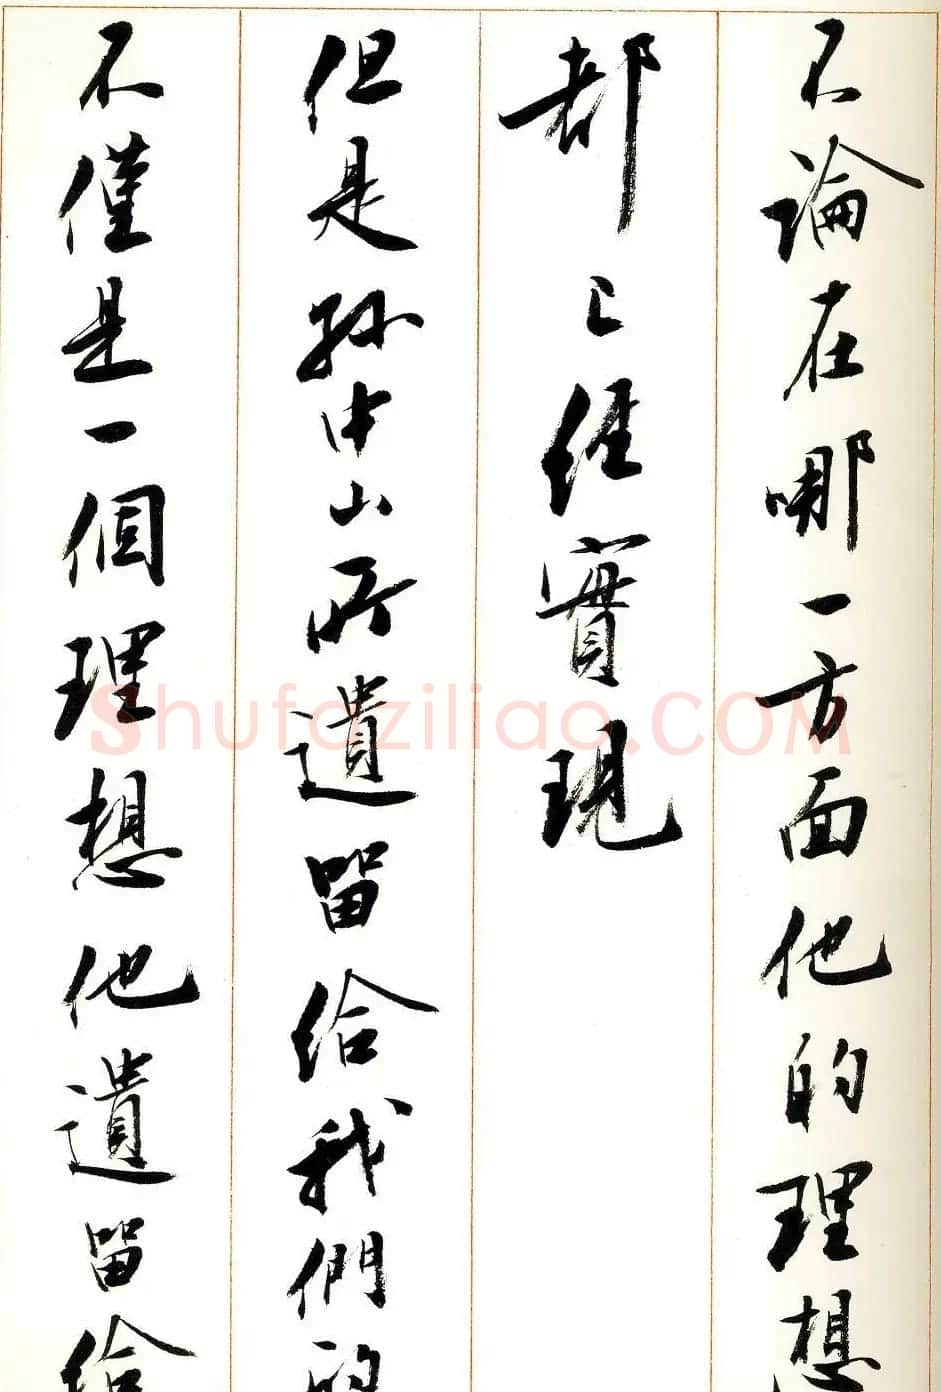 不論在哪一方面他的理想
都已經實現
但是孫中山所遺留給我們的
不僅是一個理想他遺留給
Shufaziliao.COM